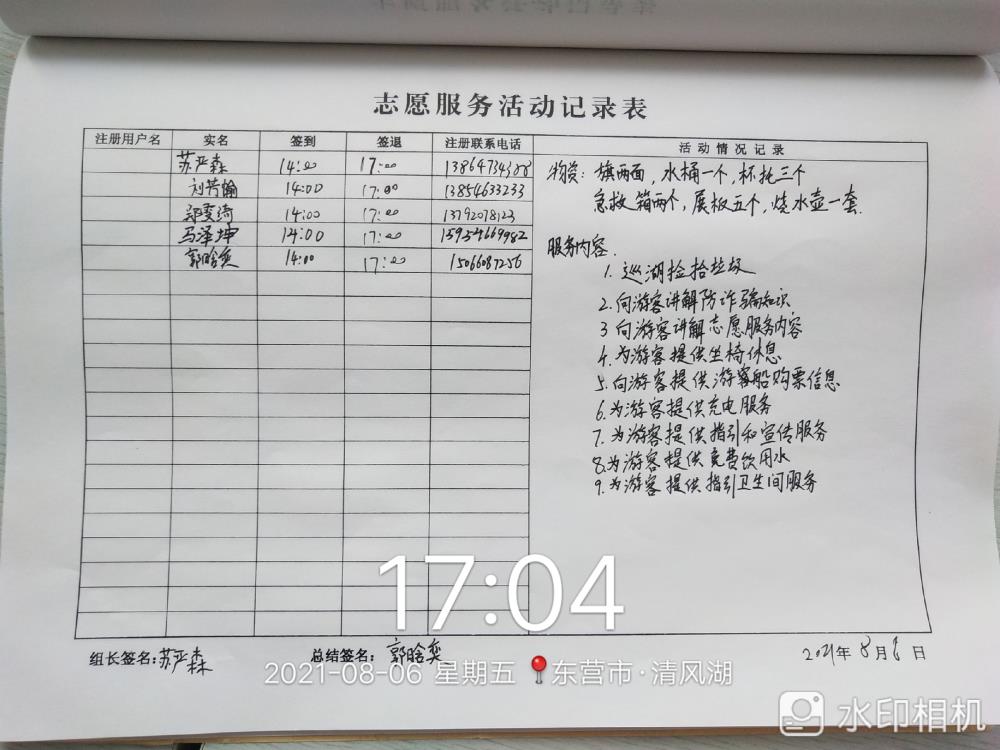 志愿服务活动记录表
注册用户名 实名 签到 签退 注册联系电话 活动情况记录
苏亚森 14:00 17:00
刘芳翰 14:00 17:00 13854633233
14:00 17:00 13792078123
马泽坤 14:00 17:00 15954669982
郭晗奕 14:00 17:00 15066087256
物资：旗两面，水桶一个，杯托三个
急救箱两个，展板五个，烧水壶一套.
服务内容.
1. 巡湖捡拾垃圾
2. 向游客讲解防诈骗知识
3 向游客讲解志愿服务内容
4. 为游客提供坐椅休息
5. 向游客提供游客船购票信息
6. 为游客提供充电服务
7. 为游客提供指引和宣传服务
8. 为游客提供免费饮用水
9. 为游客提供指引卫生间服务
17:04
组长签名:苏亚森 总结签名：郭晗奕 2021年8月6日
2021-08-06 星期五 东营市·清风湖
水印相机